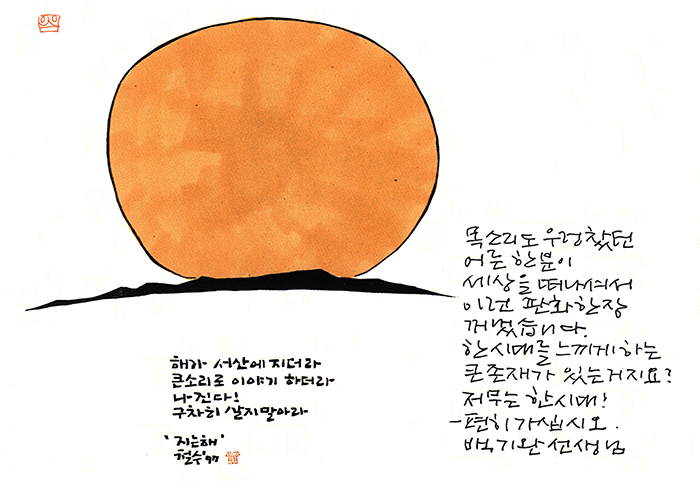 해가 서산에 지더라
큰소리로 이야기 하더라
나 진다!
구차히 살지말아라
'지는해'
철수 '97
목소리도 우렁찼던
어른 한분이
세상을 떠나셔서
이런 판화한장
꺼냈습니다.
한시대를 느끼게하는
큰존재가 있는거지요?
저무는 한시대!
-편히가십시오.
백기완선생님